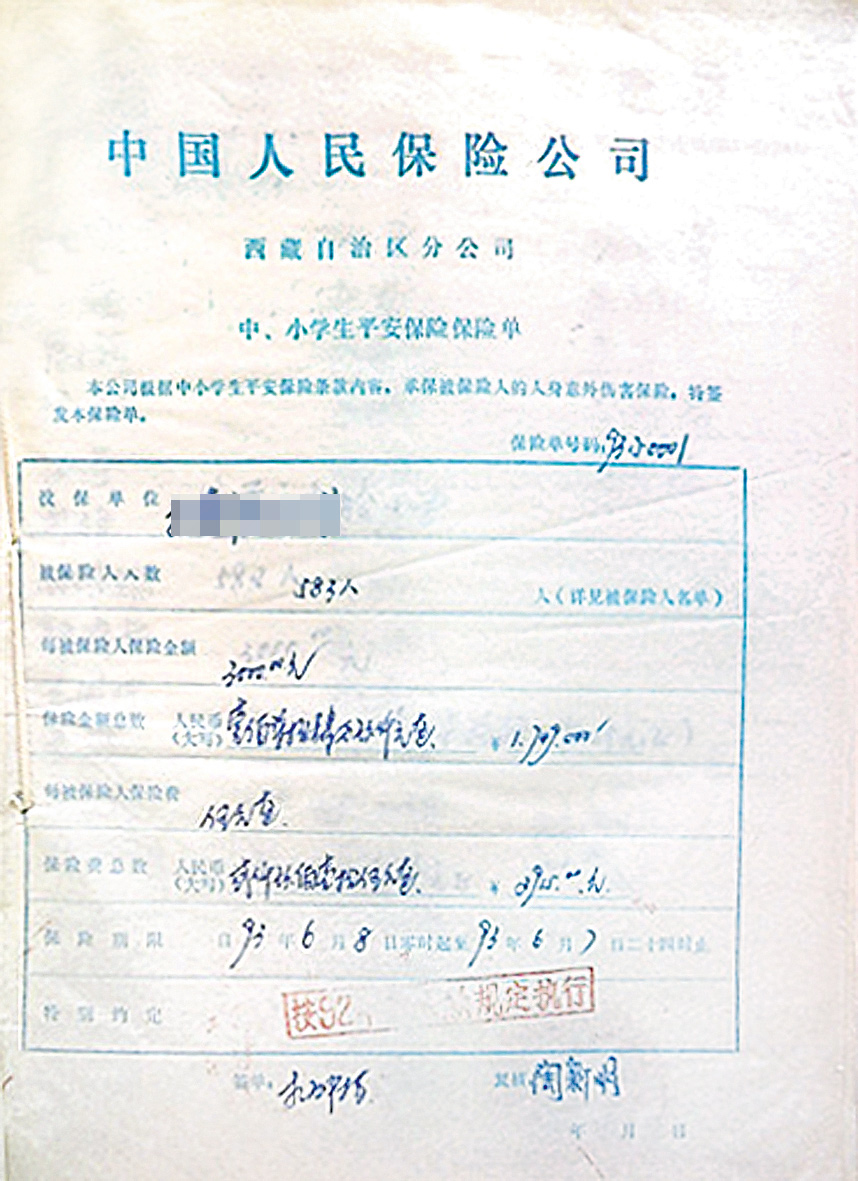 中国人民保险公司
西藏自治区分公司
中、小学生平安保险保险单
本公司根据中小学生平安保险条款内容，承保被保险人的人身意外伤害保险，特签
发本保险单。
保险单号码：
投保单位
被保险人人数 583人 人（详见被保险人名单）
每被保险人保险金额 3000.00元
保险金额总数 人民币（大写） ¥
每被保险人保险费 伍元正.
保险费总数 人民币（大写） ¥
保险期限 自93年6月8日零时起至93年6月7日二十四时止
特别约定 按92 规定执行
签单： 复核 陶新明
年 月 日